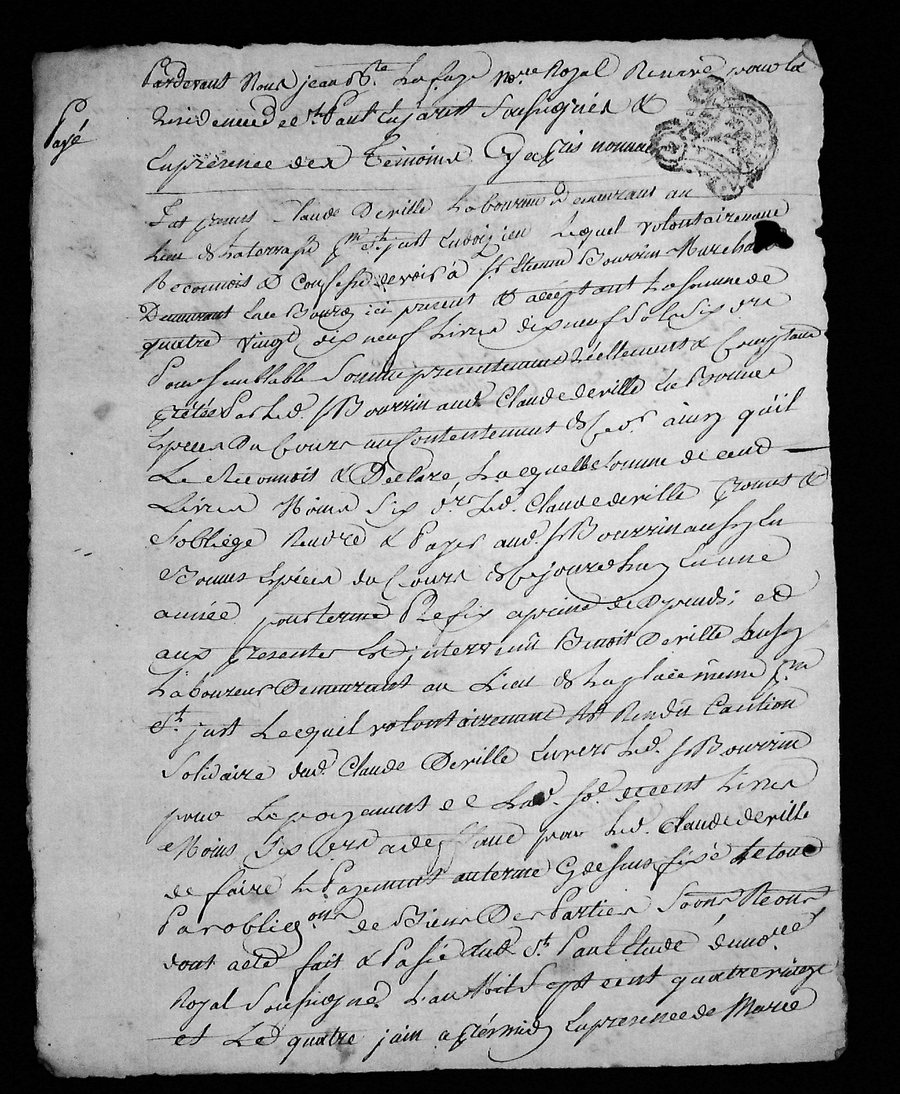 Payé
Pardevant Nous jean Bte Lafaye nore Royal Reservé pour la
Residence de St Paul En jarest Soussignés &
En presence des Temoins Cy apres nommé
fut present Claude Deville Laboureur demeurant au
lieu de Laterrasse St just Lequel volontairement
Reconnois & Confesse devoir à Sr Etienne Bourrin Marchand
Demeurant Cue Bourg ici present & acceptant La somme de
quatre vingt dix neuf Livres dix neuf Sols Six drs
Pour Semblable Somme presentement Reellement & Comptant
pretés Par Led. Sr Bourrin aud. Claude deville En Bonnes
Espèces Du Cours au Contentement de Ced. ainsy qu'il
Le Reconnoit & Declare, Lacquelle Somme de Cent
Livres Moins Six drs Led. Claude deville promet &
S'obliége Rendre & Payer aud. Sr Bourrin aussy En
Bonnes Espéces du Cours de Cejourdhuy En une
année pour terme Prefix a peine de Dépends; et
aux presentes Est intervenu Benoit Deville aussy
Laboureur Demeurant au Lieu de La place même prse
St just Lecquel volontairement s'est Rendu Caution
Solidaire dud. Claude Deville Envers Led. Sr Bourrin
pour Le payement de Lad. Soe. de cent Livres
Moins Six drs a deffaut pour Led. Claude deville
de faire Le Payement au terme Cy dessus fixé Le tout
Par obligeons de Biens Des Parties Soons Reons
dont acte fait & Passé aud. St. Paul Etude dud. nore
Royal Soussigné L'an Mil Sept cent quatre vingt
et Le quatre juin apres midy En presence de Marie